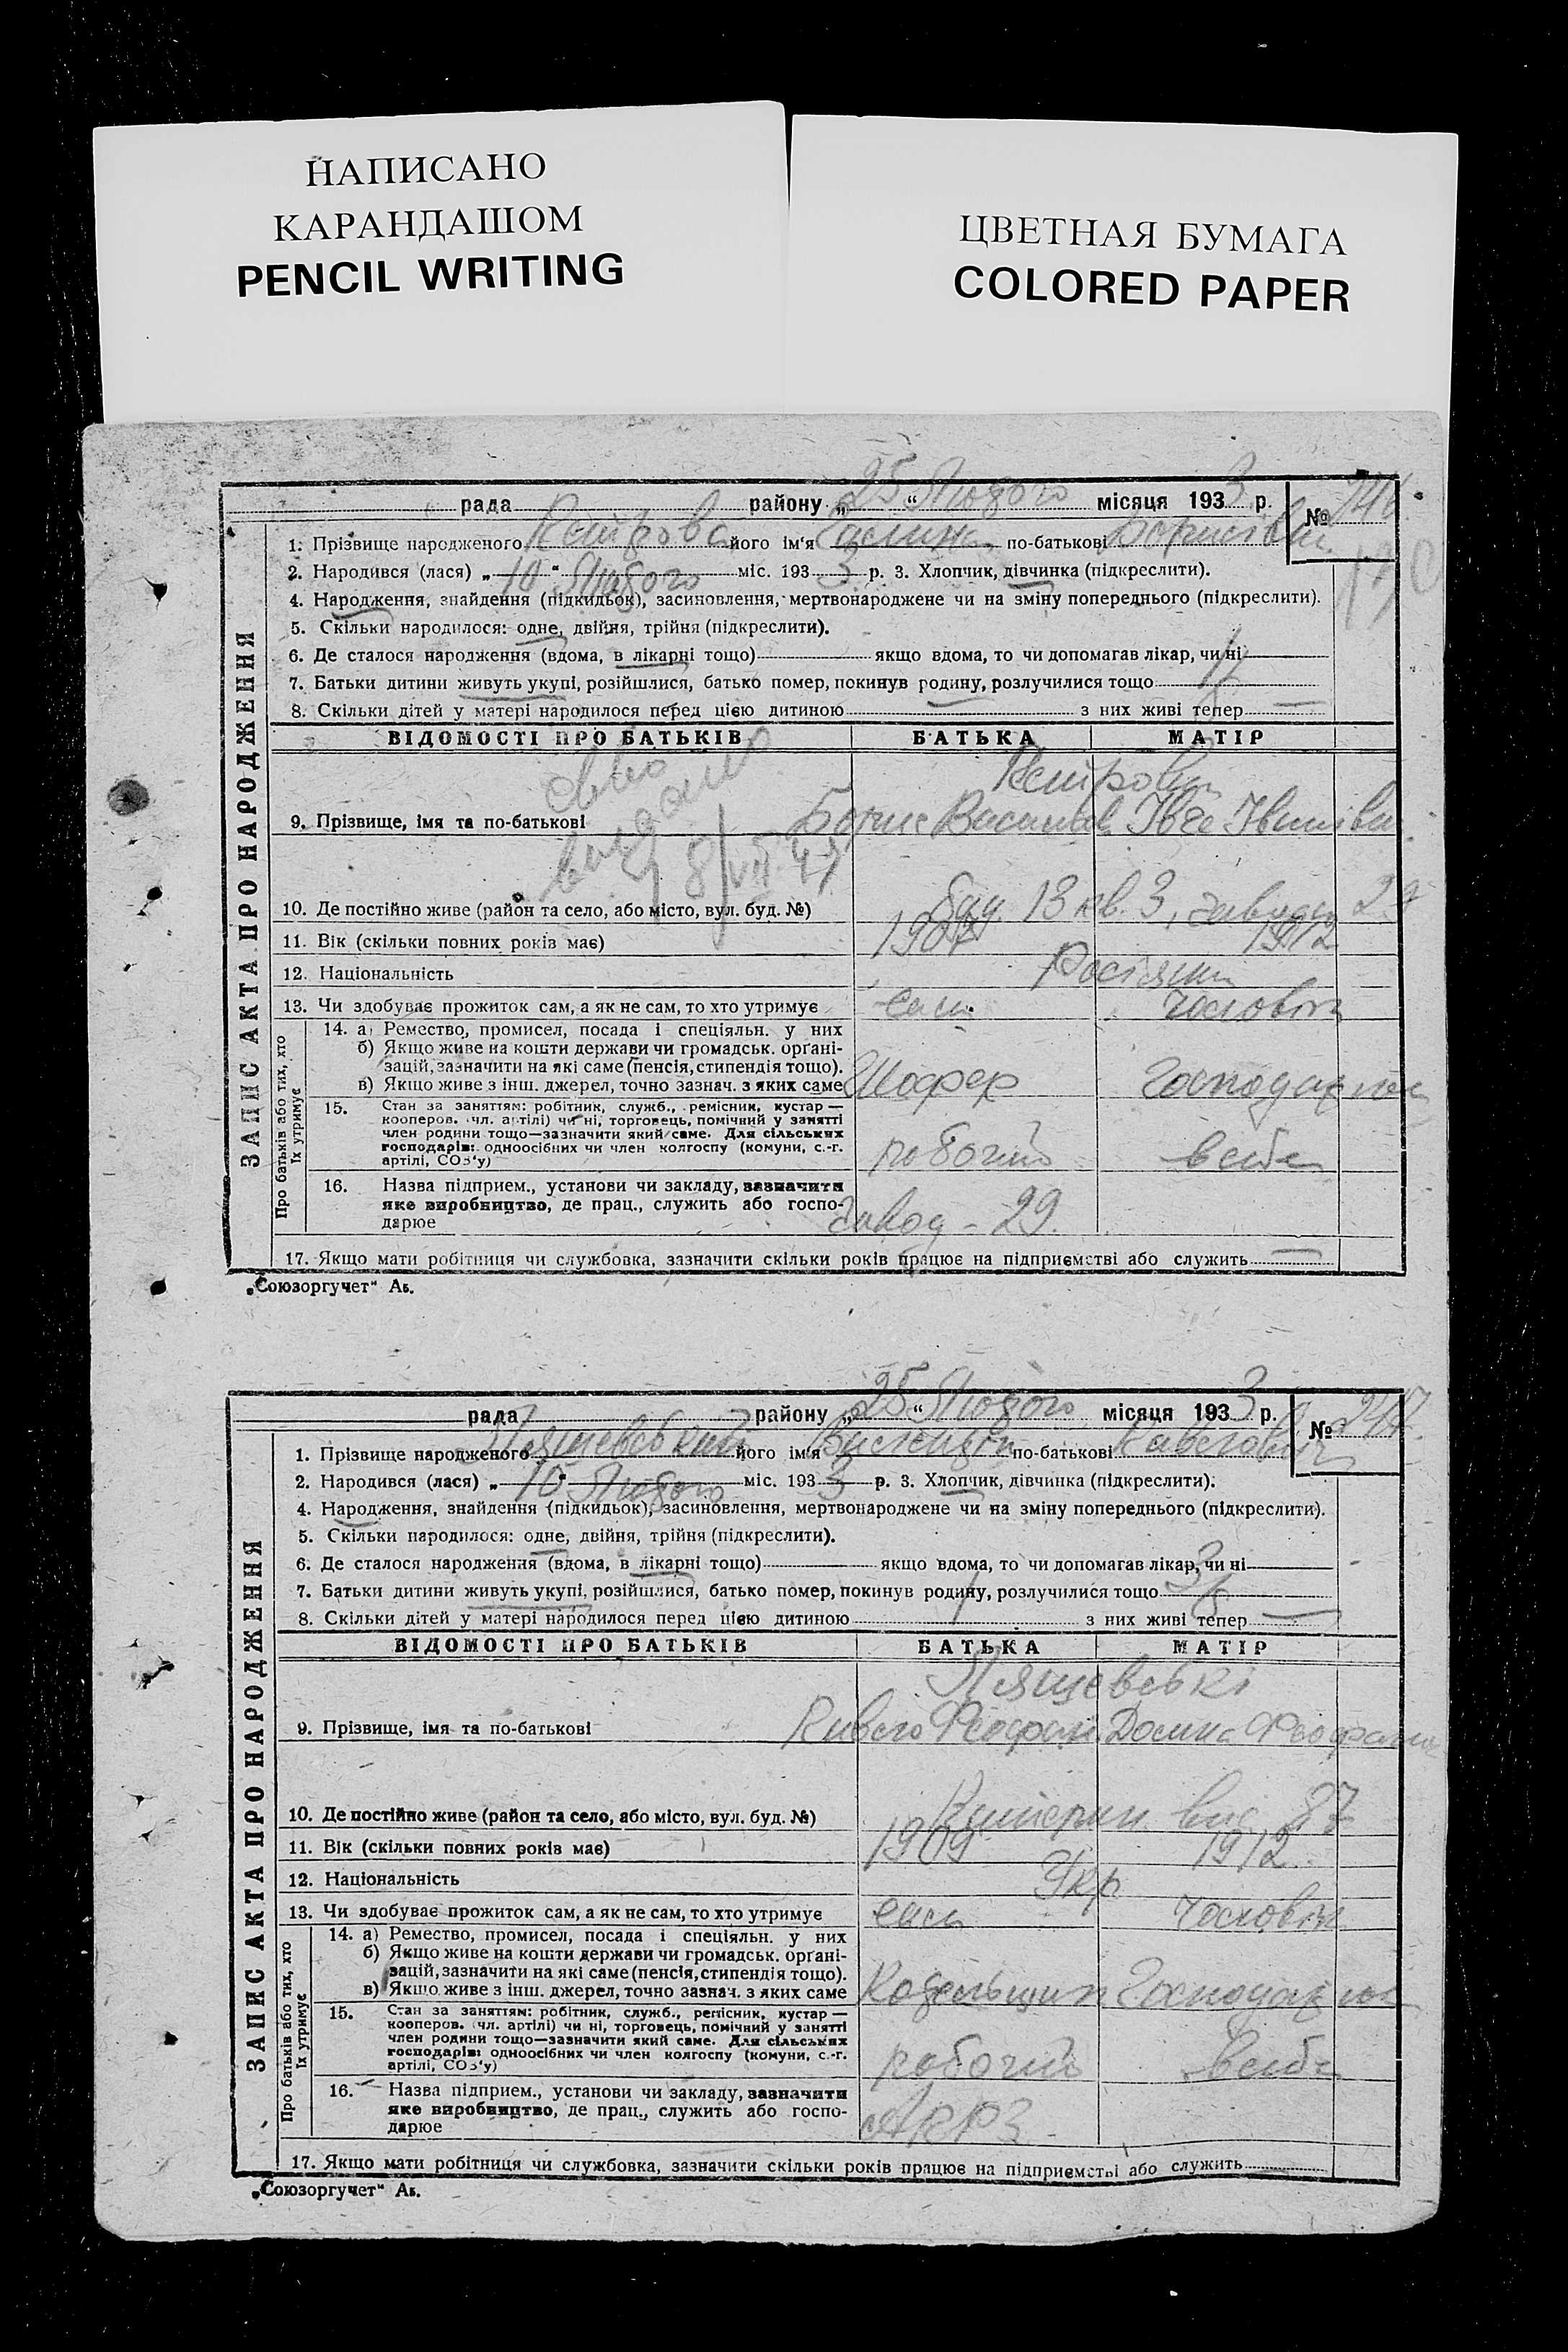 НАПИСАНО
КАРАНДАШОМ
PENCIL WRITING
ЦВЕТНАЯ БУМАГА
COLORED PAPER
рада района „25“ Лютого місяця 1933 р. № 246
1. Прізвище народженого Петрова його ім'я Галина по-батькові Борисівна
2. Народився (лася) „10“ Лютого міс. 1933 р. 3. Хлопчик, дівчинка (підкреслити).
4. Народження, знайдення (підкидьок), засиновлення, мертвонароджене чи на зміну попереднього (підкреслити).
5. Скільки народилося: одне, двійня, трійня (підкреслити).
6. Де сталося народження (вдома, в лікарні тощо) якщо вдома, то чи допомагав лікар, чи ні
7. Батьки дитини живуть укупі, розійшлися, батько помер, покинув родину, розлучилися тощо
8. Скільки дітей у матері народилося перед цією дитиною — з них живі тепер —
ЗАПИС АКТА ПРО НАРОДЖЕННЯ
ВІДОМОСТІ ПРО БАТЬКІВ БАТЬКА МАТІР
Петрови
9. Прізвище, імя та по-батькові Борис Василів
8/VII 47
10. Де постійно живе (район та село, або місто, вул. буд. №) буд. 13 кв. 3, завода 29
11. Вік (скільки повних років має) 1907 1912
12. Національність Росіяни
13. Чи здобуває прожиток сам, а як не сам, то хто утримує сам чоловік
Про батьків або тих, хто їх утримує
14. а) Ремество, промисел, посада і спеціяльн. у них
б) Якщо живе на кошти держави чи громадськ. орґані-
зацій, зазначити на які саме (пенсія, стипендія тощо).
в) Якщо живе з інш. джерел, точно зазнач. з яких саме Шофер Господарює
15. Стан за заняттям: робітник, служб., ремісник, кустар —
кооперов. чл. артілі) чи ні, торговець, помічний у занятті
член родини тощо—зазначити який саме. Для сільських
господарів: одноосібних чи член колгоспу (комуни, с.-г.
артілі, СОЗ'у) робочий вдома
16. Назва підприєм., установи чи закладу, зазначити
яке виробництво, де прац., служить або госпо-
дарює Завод - 29.
17. Якщо мати робітниця чи службовка, зазначити скільки років працює на підприємстві або служить —
„Союзоргучет“ Аб.
рада району „25“ Лютого місяця 1933 р. № 247
1. Прізвище народженого Ляшевський його ім'я по-батькові Павлович
2. Народився (лася) „10“ Лютого міс. 1933 р. 3. Хлопчик, дівчинка (підкреслити).
4. Народження, знайдення (підкидьок), засиновлення, мертвонароджене чи на зміну попереднього (підкреслити).
5. Скільки народилося: одне, двійня, трійня (підкреслити).
6. Де сталося народження (вдома, в лікарні тощо) якщо вдома, то чи допомагав лікар, чи ні
7. Батьки дитини живуть укупі, розійшлися, батько помер, покинув родину, розлучилися тощо
8. Скільки дітей у матері народилося перед цією дитиною 1 з них живі тепер —
ЗАПИС АКТА ПРО НАРОДЖЕННЯ
ВІДОМОСТІ ПРО БАТЬКІВ БАТЬКА МАТІР
Ляшевські
9. Прізвище, імя та по-батькові Павло Феофан.
10. Де постійно живе (район та село, або місто, вул. буд. №) 87
11. Вік (скільки повних років має) 1909 1912
12. Національність Укр
13. Чи здобуває прожиток сам, а як не сам, то хто утримує сам чоловік
Про батьків або тих, хто їх утримує
14. а) Ремество, промисел, посада і спеціяльн. у них
б) Якщо живе на кошти держави чи громадськ. орґані-
зацій, зазначити на які саме (пенсія, стипендія тощо).
в) Якщо живе з інш. джерел, точно зазнач. з яких саме Котельщик Господарює
15. Стан за заняттям: робітник, служб., ремісник, кустар —
кооперов. чл. артілі) чи ні, торговець, помічний у занятті
член родини тощо—зазначити який саме. Для сільських
господарів: одноосібних чи член колгоспу (комуни, с.-г.
артілі, СОЗ'у) робочий вдома
16. Назва підприєм., установи чи закладу, зазначити
яке виробництво, де прац., служить або госпо-
дарює
17. Якщо мати робітниця чи службовка, зазначити скільки років працює на підприємстві або служить
„Союзоргучет“ Аб.